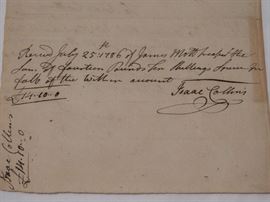 Recved July 25th 1786 of James Mott Treasurer the
Sum of fourteen Pounds ten Shillings Specie in
full of the within account
£14.10.0
Isaac Collins
Isaac Collins
£14.10.0